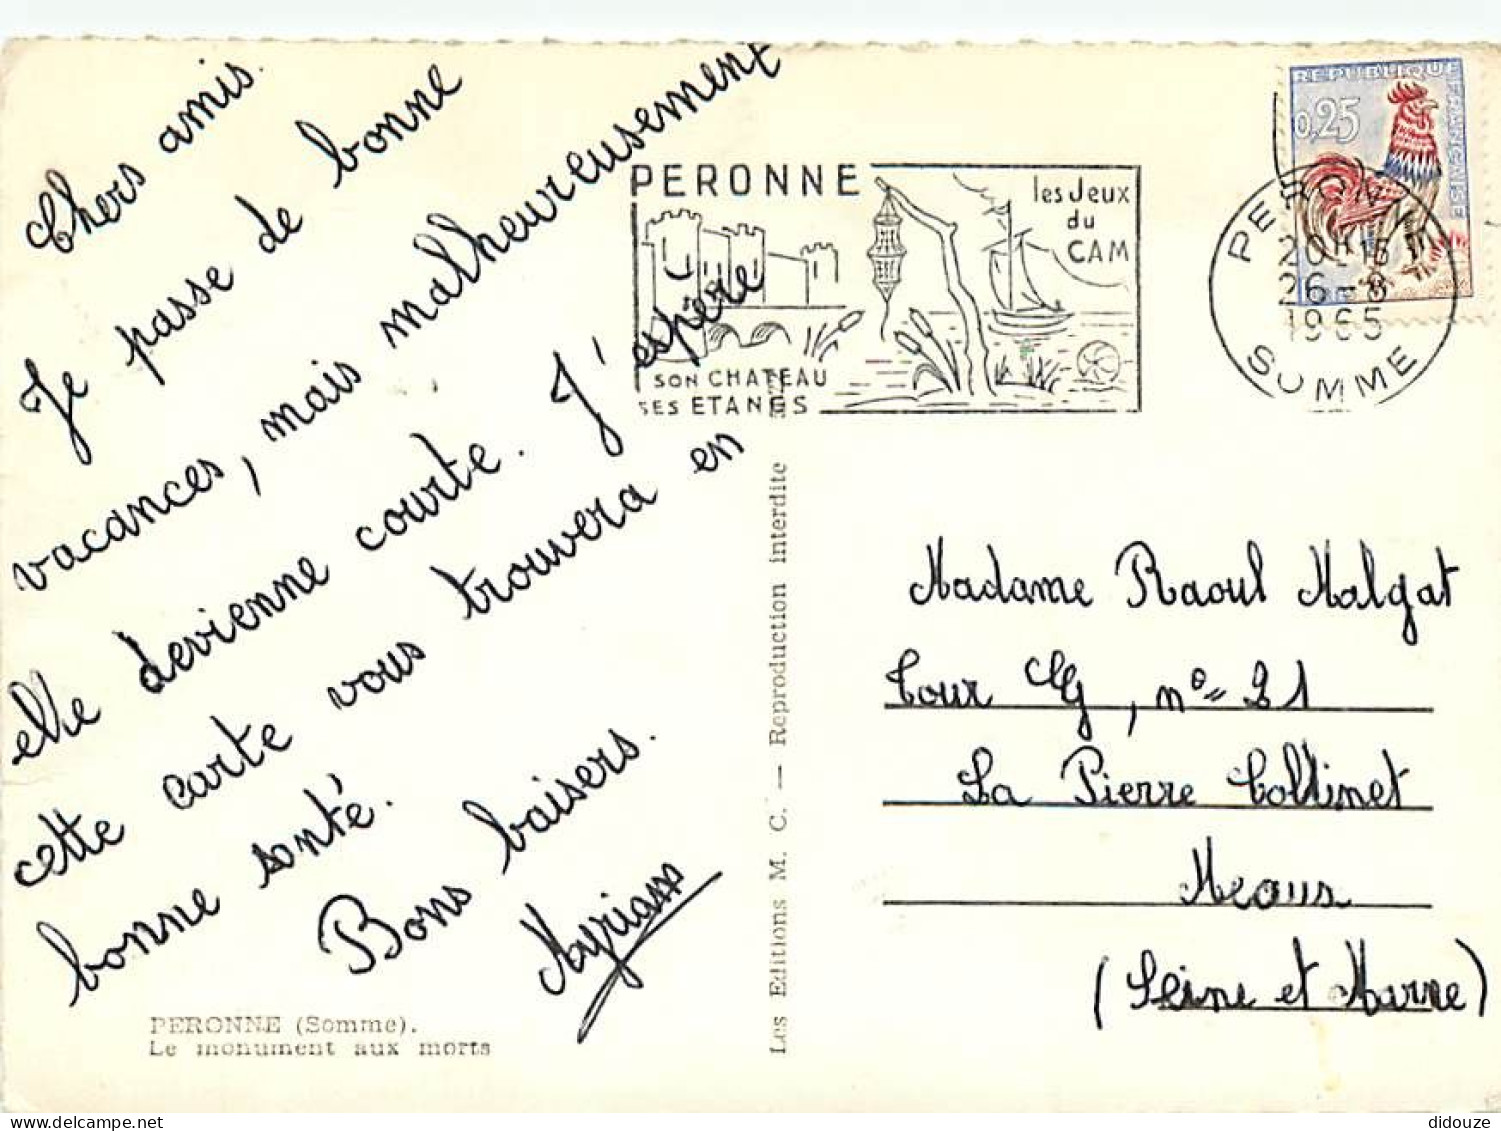 Chers amis.
Je passe de bonne
vacances, mais malheureusement
elle devienne courte. J'espère
cette carte vous trouvera en
bonne santé.
Bons baisers.
Myriam
PERONNE (Somme).
Le monument aux morts
Les Editions M. C. — Reproduction interdite
PERONNE
les Jeux
du
CAM
SON CHATEAU
SES ETANGS
REPUBLIQUE FRANCAISE
0,25
PERONNE
20H15
26-8
1965
SOMME
Madame Raoul Malgat
Tour G, n° 21
La Pierre Collinet
Meaux
(Seine et Marne)
didouze